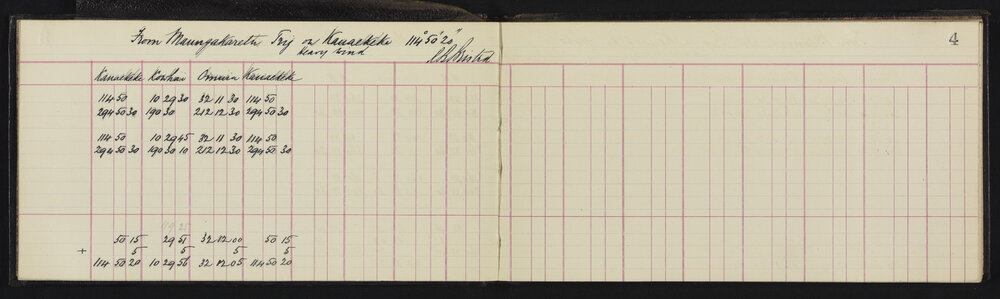 From Maungakaretu Trij on Kanaekeke 114° 50' 20"
Heavy Wind
4
Kanaekeke Kowhai Omuira Kanaekeke
114 50 10 29 30 32 11 30 114 50
294 50 30 190 30 212 12 30 294 50 30
114 50 10 29 45 32 11 30 114 50
294 50 30 190 30 10 212 12 30 294 50 30
50 15 29 51 32 12 00 50 15
+ 5 5 5 5
114 50 20 10 29 56 32 12 05 114 50 20